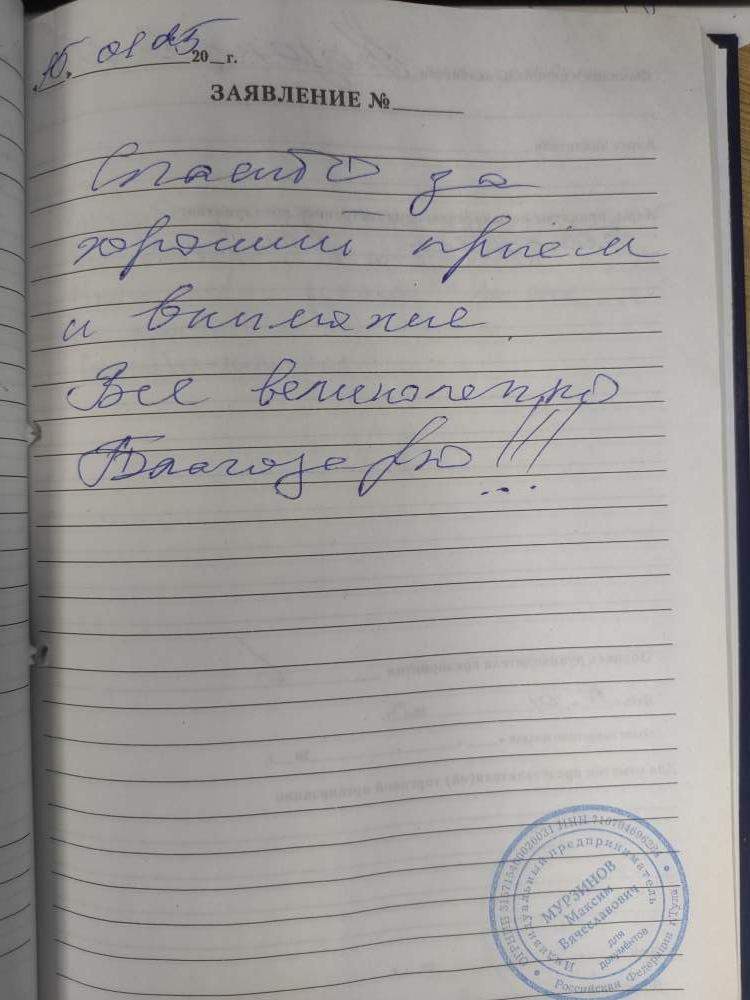 15. 01 25 20 г.
ЗАЯВЛЕНИЕ №
Спасибо за
хороший приём
и внимание.
Все великолепно
Благодарю!!!
Индивидуальный предприниматель
МУРЗИНОВ
Максим
Вячеславович
для
документов
Российская Федерация г.Тула